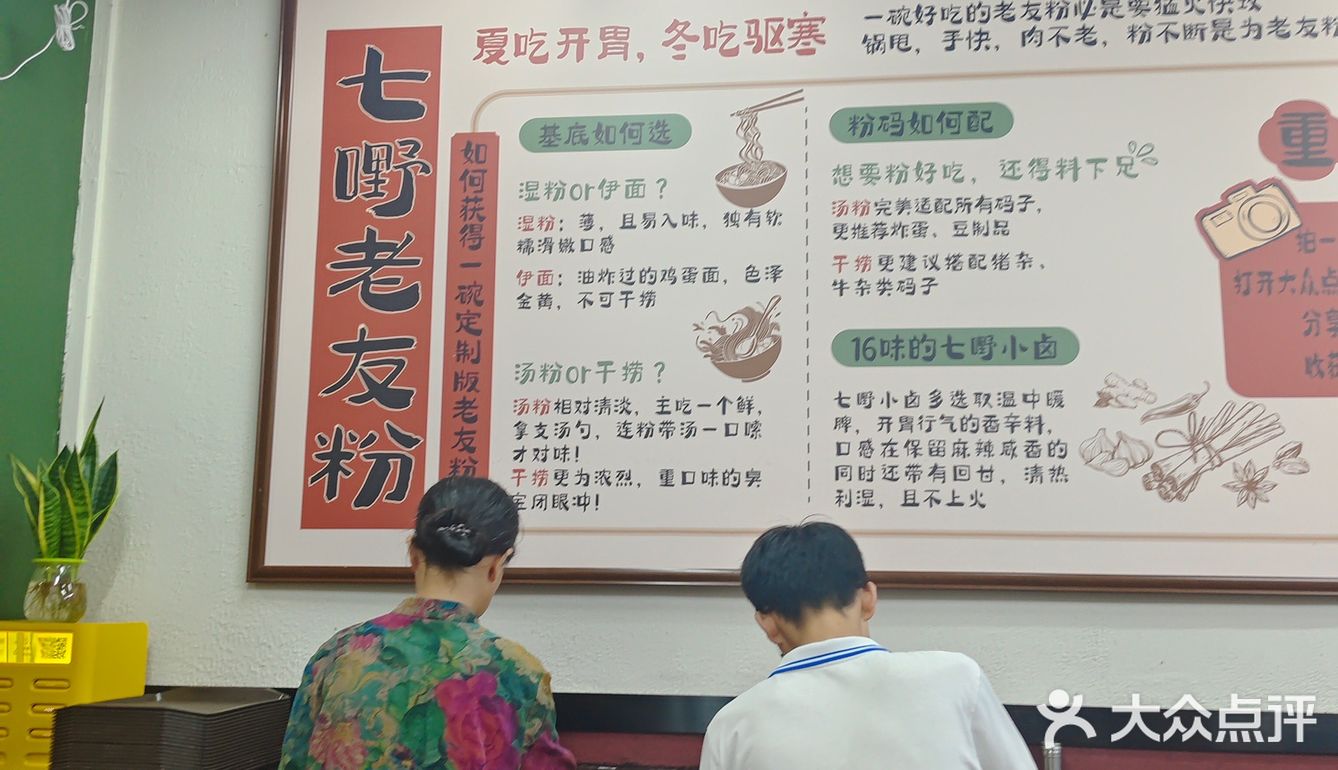 七嘢老友粉
夏吃开胃，冬吃驱寒
一碗好吃的老友粉必是要猛火快攻
锅甩，手快，肉不老，粉不断是为老友粉
如何获得一碗定制版老友粉
基底如何选
湿粉or伊面？
湿粉：薄，且易入味，独有软
糯滑嫩口感
伊面：油炸过的鸡蛋面，色泽
金黄，不可干捞
汤粉or干捞？
汤粉相对清淡，主吃一个鲜，
拿支汤勺，连粉带汤一口嗦
才对味！
干捞更为浓烈，重口味的臭
宝闭眼冲！
粉码如何配
想要粉好吃，还得料下足
汤粉完美适配所有码子，
更推荐炸蛋、豆制品
干捞更建议搭配猪杂、
牛杂类码子
16味的七嘢小卤
七嘢小卤多选取温中暖
脾，开胃行气的香辛料，
口感在保留麻辣咸香的
同时还带有回甘，清热
利湿，且不上火
重
拍一
打开大众点
分享
收获
大众点评